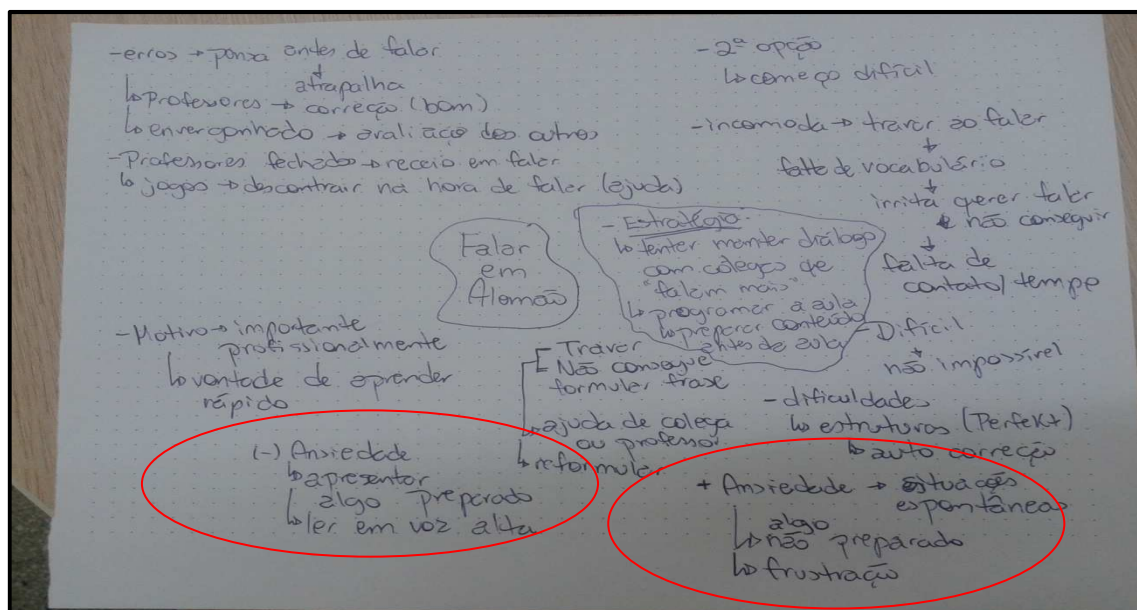 -erros → pensa antes de falar
↓
atrapalha
↳ Professores → correção (bom)
↳ envergonhado → avaliação dos outros
-Professores fechado → receio em falar
↳ jogos → descontrair na hora de falar (ajuda)
-2ª opção
↳ começo difícil
-incomoda → travar ao falar
↓
falta de vocabulário
↓
irrita querer falar
e não conseguir
↓
falta de
contato/tempo
Falar
em
Alemão
-Estratégia:
↳ tentar manter diálogo
com colegas que
"falem mais"
↳ programar a aula
↳ preparar conteúdo
antes de aula
-Difícil
↓
não impossível
-Motivo → importante
profissionalmente
↳ vontade de aprender
rápido
Travar
Não consegue
formular frase
↳ ajuda de colega
ou professor
↳ reformular
-dificuldades
↳ estruturas (Perfekt)
↳ auto correção
(-) Ansiedade
↳ apresentar
algo preparado
↳ ler em voz alta
+ Ansiedade → situações
espontâneas
↳ algo
não preparado
↳ frustração